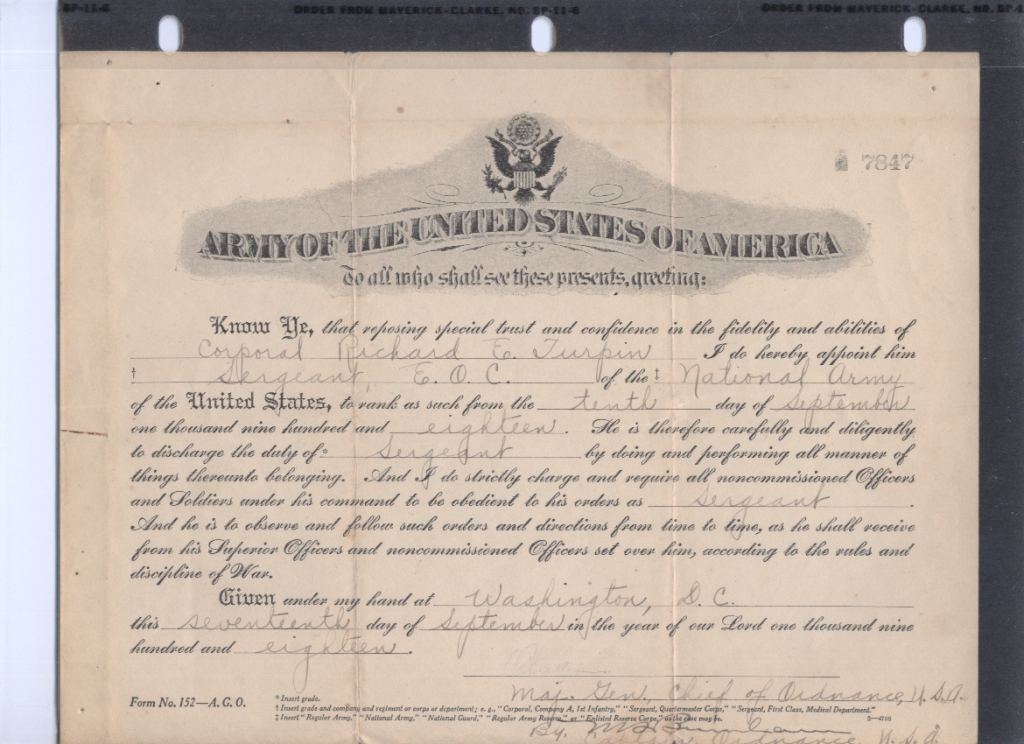 SP-11-6 ORDER FROM MAVERICK-CLARKE, NO. SP-11-6 ORDER FROM MAVERICK-CLARKE, NO. SP-1
7847
ARMY OF THE UNITED STATES OF AMERICA
To all who shall see these presents, greeting:
Know Ye, that reposing special trust and confidence in the fidelity and abilities of
Corporal Richard E. Turpin I do hereby appoint him
† Sergeant, E. O. C. of the ‡ National Army
of the United States, to rank as such from the tenth day of September
one thousand nine hundred and eighteen. He is therefore carefully and diligently
to discharge the duty of* Sergeant by doing and performing all manner of
things thereunto belonging. And I do strictly charge and require all noncommissioned Officers
and Soldiers under his command to be obedient to his orders as Sergeant.
And he is to observe and follow such orders and directions from time to time, as he shall receive
from his Superior Officers and noncommissioned Officers set over him, according to the rules and
discipline of War.
Given under my hand at Washington, D. C.
this seventeenth day of September in the year of our Lord one thousand nine
hundred and eighteen.
Maj. Gen. Chief of Ordnance, U.S.A.
Form No. 152—A. G. O.
* Insert grade.
† Insert grade and company and regiment or corps or department; e. g., "Corporal, Company A, 1st Infantry," "Sergeant, Quartermaster Corps," "Sergeant, First Class, Medical Department."
‡ Insert "Regular Army," "National Army," "National Guard," "Regular Army Reserve," or "Enlisted Reserve Corps," as the case may be.
By.
Captain Ordnance U.S.A.